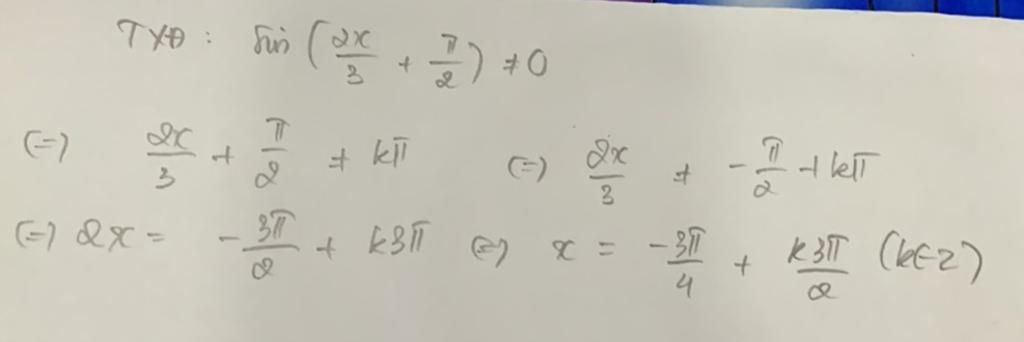 TXĐ : sin (2x/3 + π/2) ≠ 0
(=) 2x/3 + π/2 ≠ kπ (=) 2x/3 ≠ -π/2 + kπ
(=) 2x = -3π/2 + k3π (=) x = -3π/4 + k3π/2 (k∈Z)